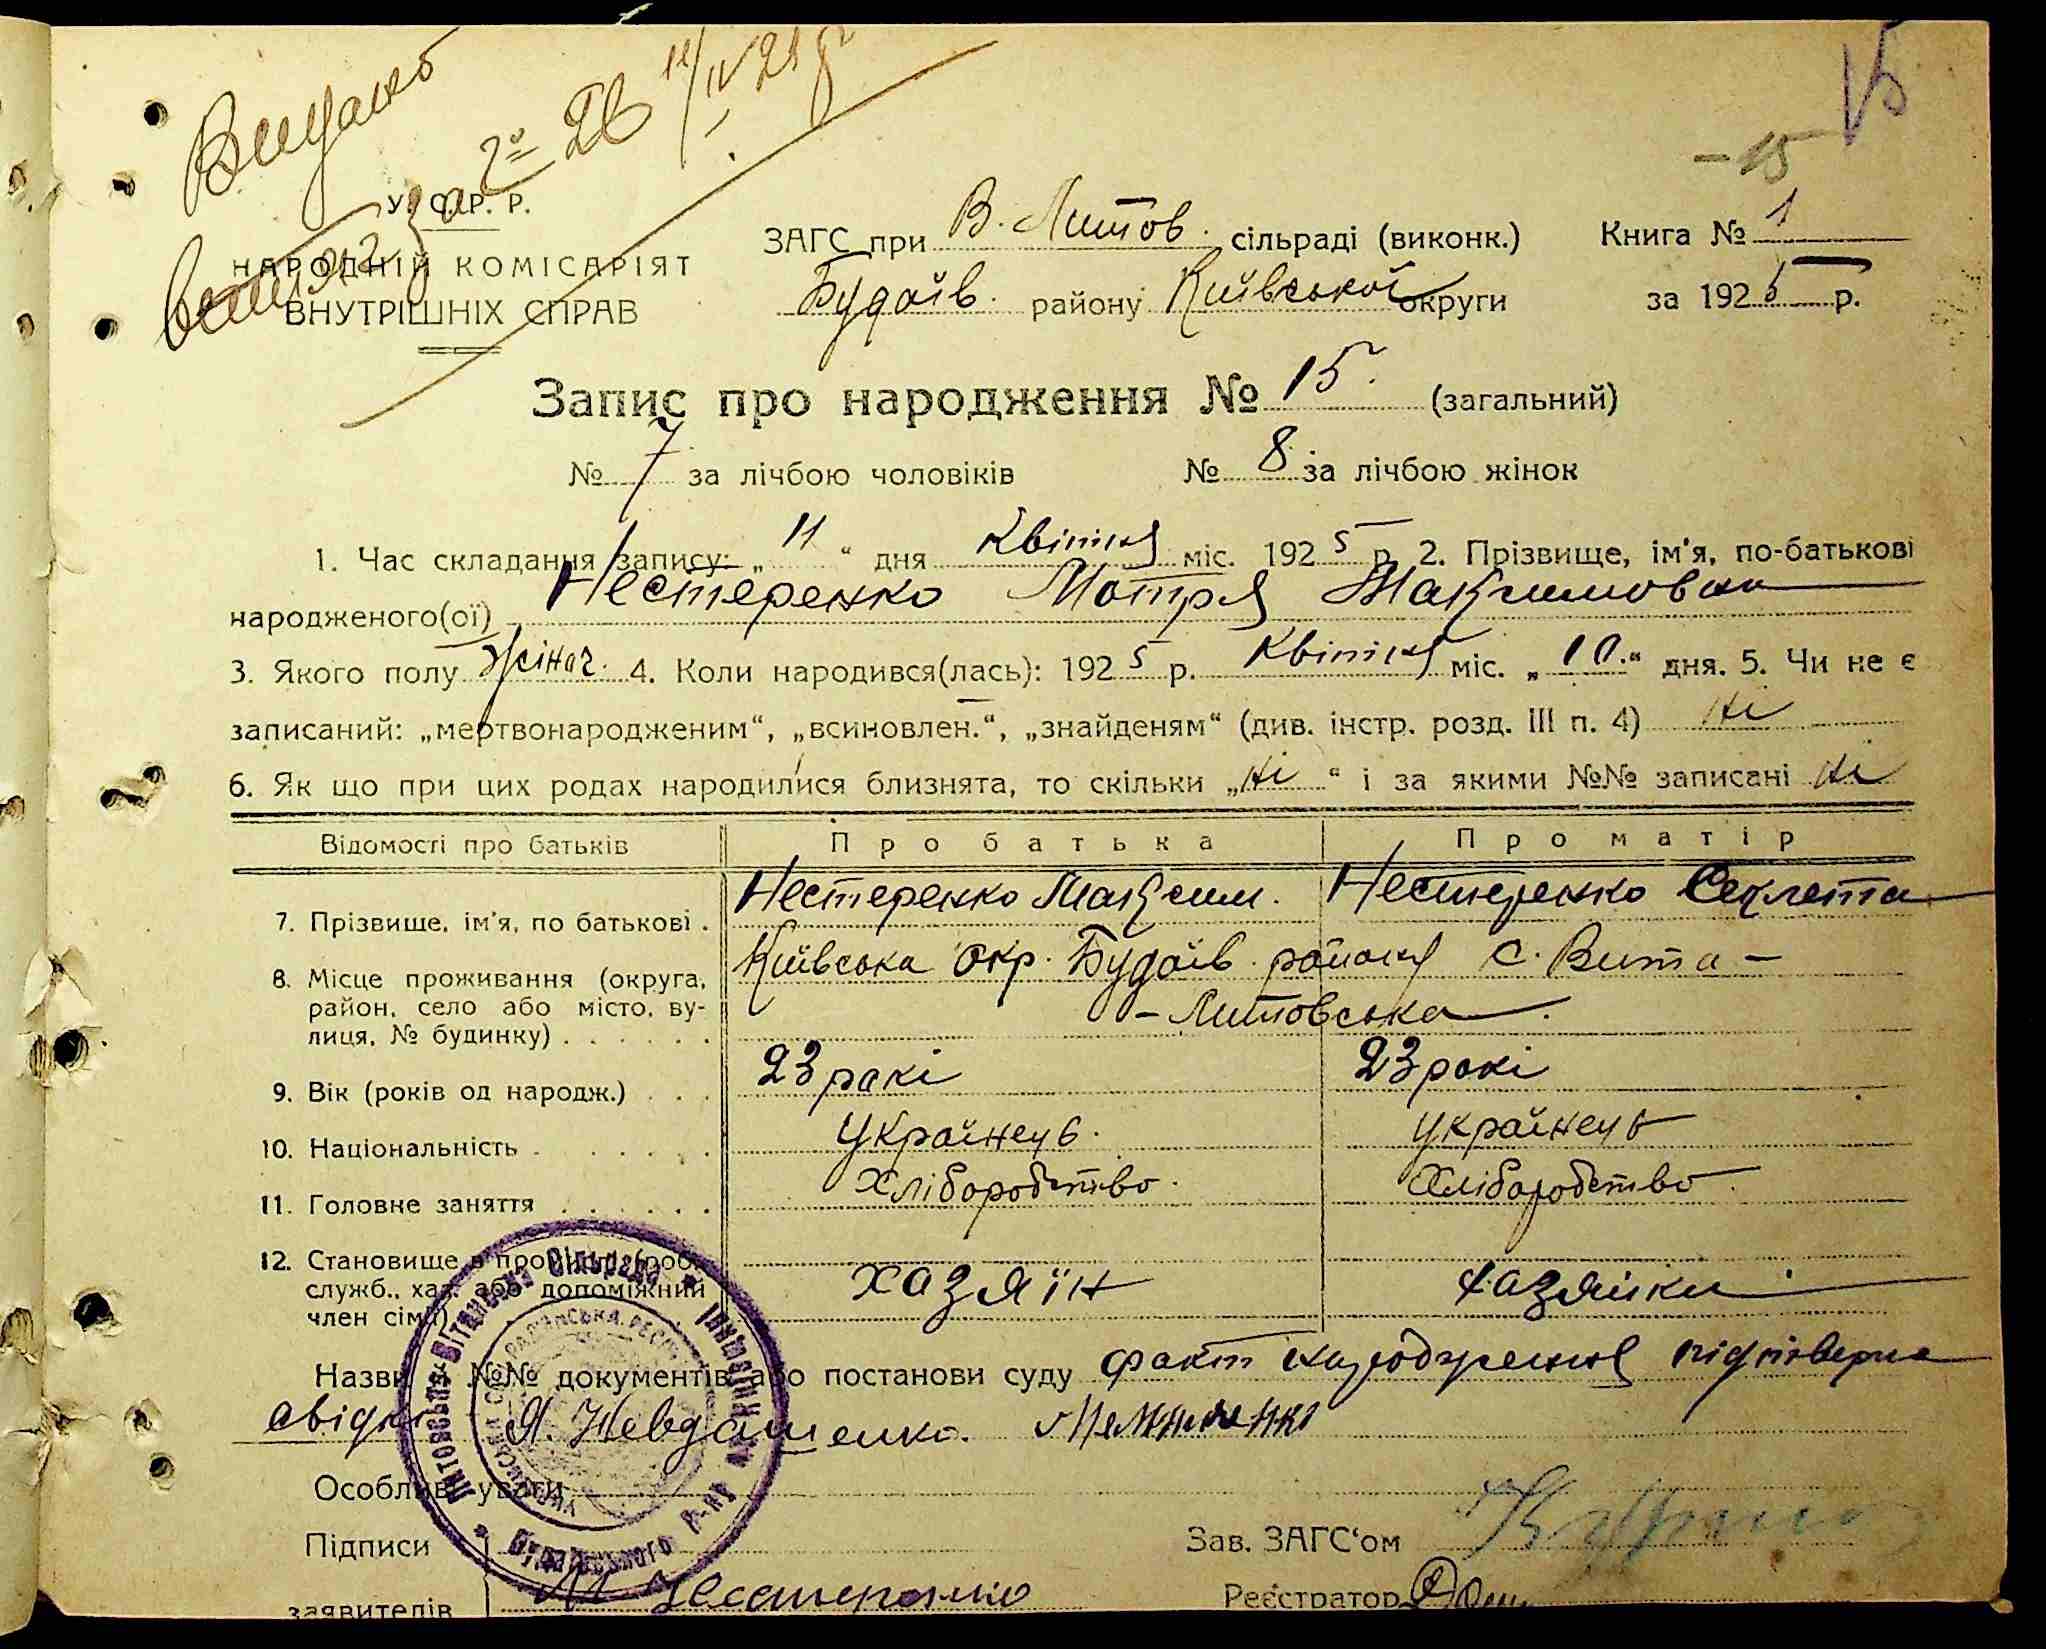 15
- 15
Видано
витяг за 2м Пв 11/IV 21 р
У. С. Р. Р.
НАРОДНІЙ КОМІСАРІЯТ
ВНУТРІШНІХ СПРАВ
ЗАГС при В. Литов. сільраді (виконк.) Книга № 1
Будаїв. району Київської округи за 1925 р.
Запис про народження № 15. (загальний)
№ 7 за лічбою чоловіків № 8 за лічбою жінок
1. Час складання запису: „ 11 “ дня Квітня міс. 1925 р. 2. Прізвище, ім'я, по-батькові
народженого(ої) Нестеренко Мотря Максимовна
3. Якого полу жіноч. 4. Коли народився(лась): 1925 р. Квітня міс. „ 10. “ дня. 5. Чи не є
записаний: „мертвонародженим“, „всиновлен.“, „знайденям“ (див. інстр. розд. III п. 4) ні
6. Як що при цих родах народилися близнята, то скільки „ ні “ і за якими №№ записані ні
Відомості про батьків Про батька Про матір
7. Прізвище, ім'я, по батькові . Нестеренко Максим. Нестеренко Секлета
8. Місце проживання (округа, Київська Окр. Будаїв. району с. Вита -
район, село або місто, ву- - Литовська
лиця, № будинку) . . . . . .
9. Вік (років од народж.) . . . 23 рокі 23 рокі
10. Національність . . . . . . Українець. Українець
11. Головне заняття . . . . . . Хліборобство. Хліборобство.
12. Становище в промислі (роб.,
служб., хаз. або допоміжний хазяїн хазяйка
член сім'ї)
Назви і №№ документів або постанови суду факт народження підтверд
свідки Я. Невдащенко.
Особливі уваги
Підписи Зав. ЗАГС‘ом
заявителів М Нестеренко Реєстратор
Літовсько-Вітянська Сільрада
Будаївського р-ну